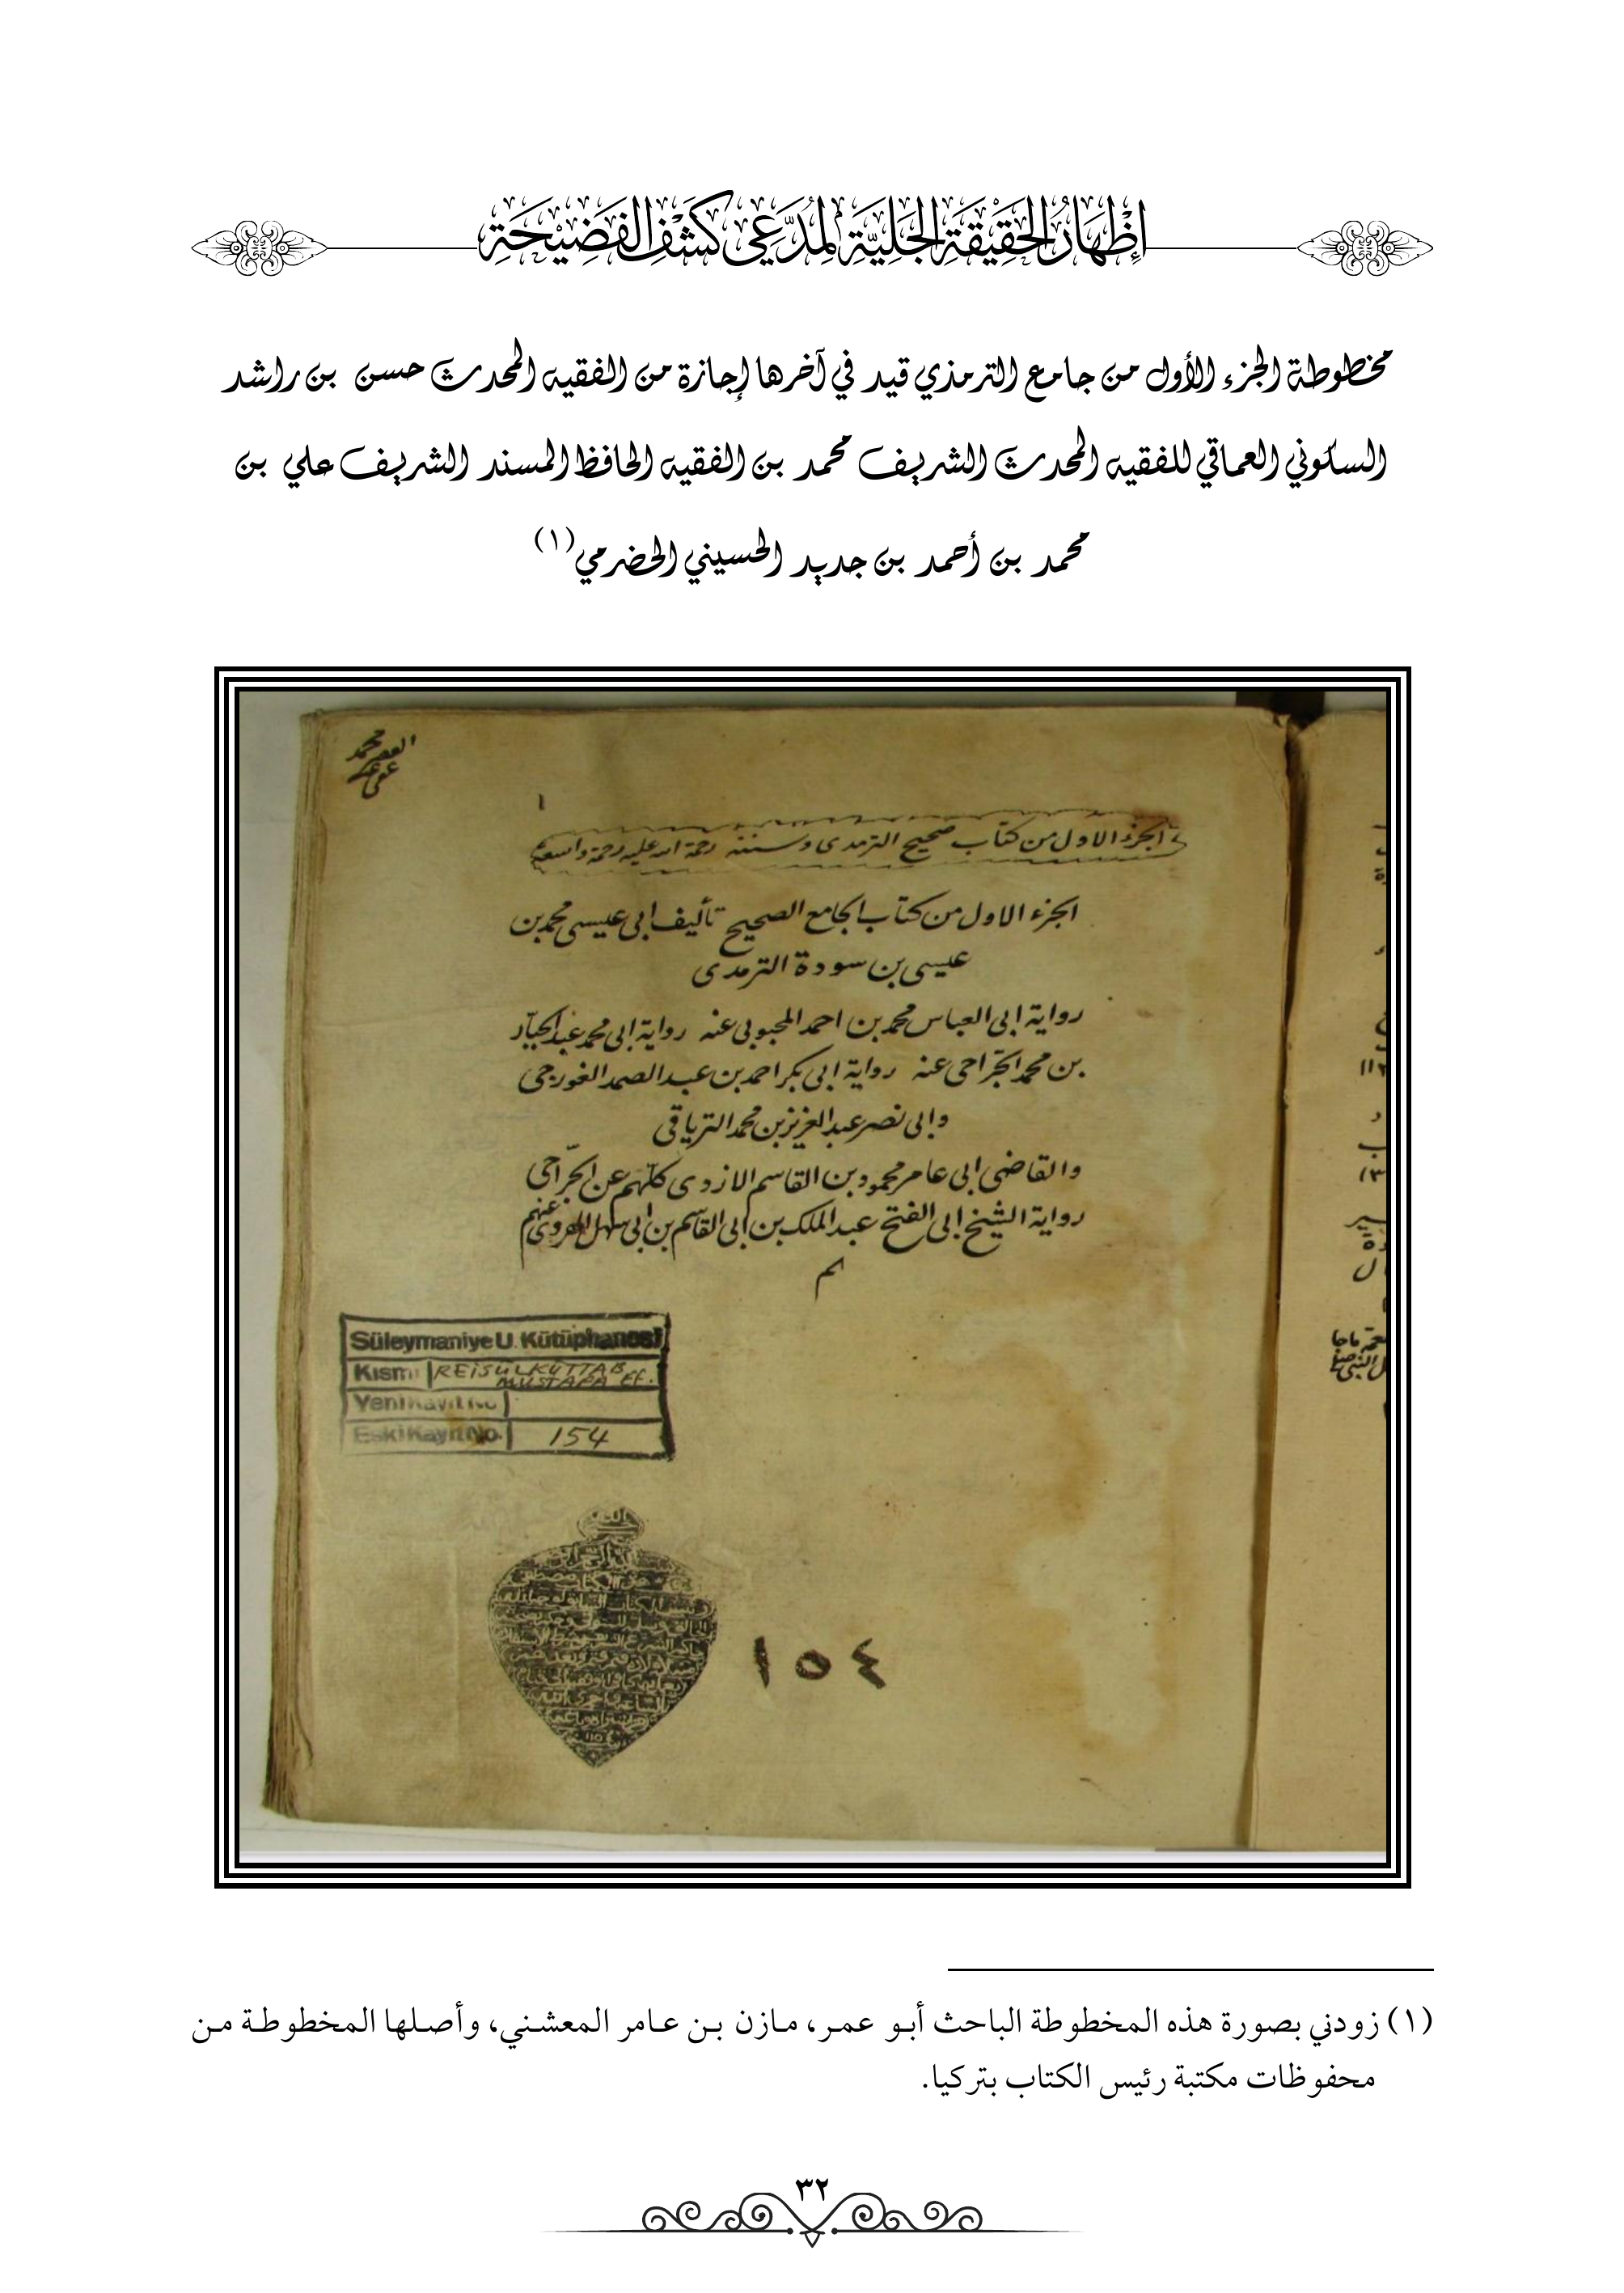 إِظْهَارُ الحَقِيْقَةِ الجَلِيَّةِ لِمُدَّعِي كَشْفِ الفَضِيْحَةِ
مخطوطة الجزء الأول من جامع الترمذي قيد في آخرها إجازة من الفقيه المحدث حسن بن راشد
السكوني العماقي للفقيه المحدث الشريف محمد بن الفقيه الحافظ المسند الشريف علي بن
محمد بن أحمد بن جديد الحسيني الحضرمي(١)
محمد
١
الجزء الاول من كتاب صحيح الترمدى وسننه رحمة الله عليه رحمة واسعة
الجزء الاول من كتاب الجامع الصحيح تأليف ابى عيسى محمد بن
عيسى بن سودة الترمدى
رواية ابى العباس محمد بن احمد المحبوبى عنه رواية ابى محمد عبد الجبار
بن محمد الجراحى عنه رواية ابى بكر احمد بن عبد الصمد الغورجى
وابى نصر عبد العزيز بن محمد الترياقى
والقاضى ابى عامر محمود بن القاسم الازدى كلهم عن الجراحى
رواية الشيخ ابى الفتح عبد الملك بن ابى القاسم بن ابى سهل الهروى عنهم
Süleymaniye U. Kütüphanesi
Kısmı REİSÜLKÜTTAB
MUSTAFA Ef.
Yeni Kayıt No
Eski Kayıt No. 154
١٥٤
(١) زودني بصورة هذه المخطوطة الباحث أبو عمر، مازن بن عامر المعشني، وأصلها المخطوطة من
محفوظات مكتبة رئيس الكتاب بتركيا.
٣٢